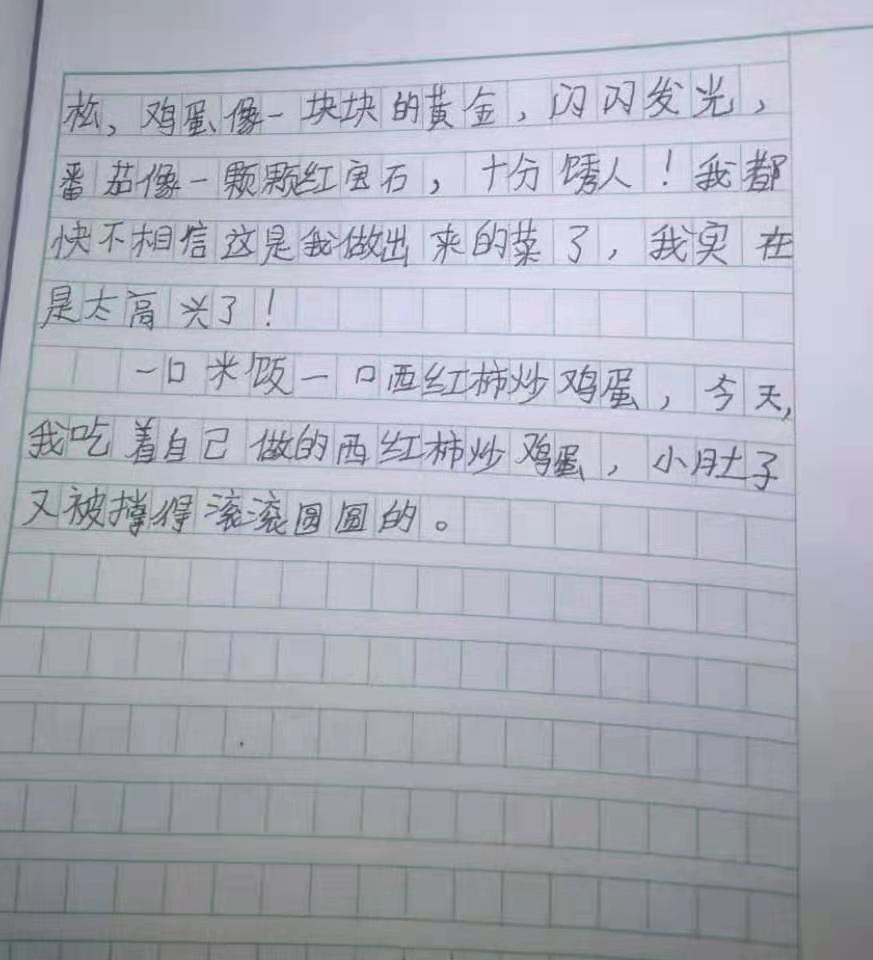 松，鸡蛋像一块块的黄金，闪闪发光，
番茄像一颗颗红宝石，十分诱人！我都
快不相信这是我做出来的菜了，我实在
是太高兴了！
一口米饭一口西红柿炒鸡蛋，今天，
我吃着自己做的西红柿炒鸡蛋，小肚子
又被撑得滚滚圆圆的。